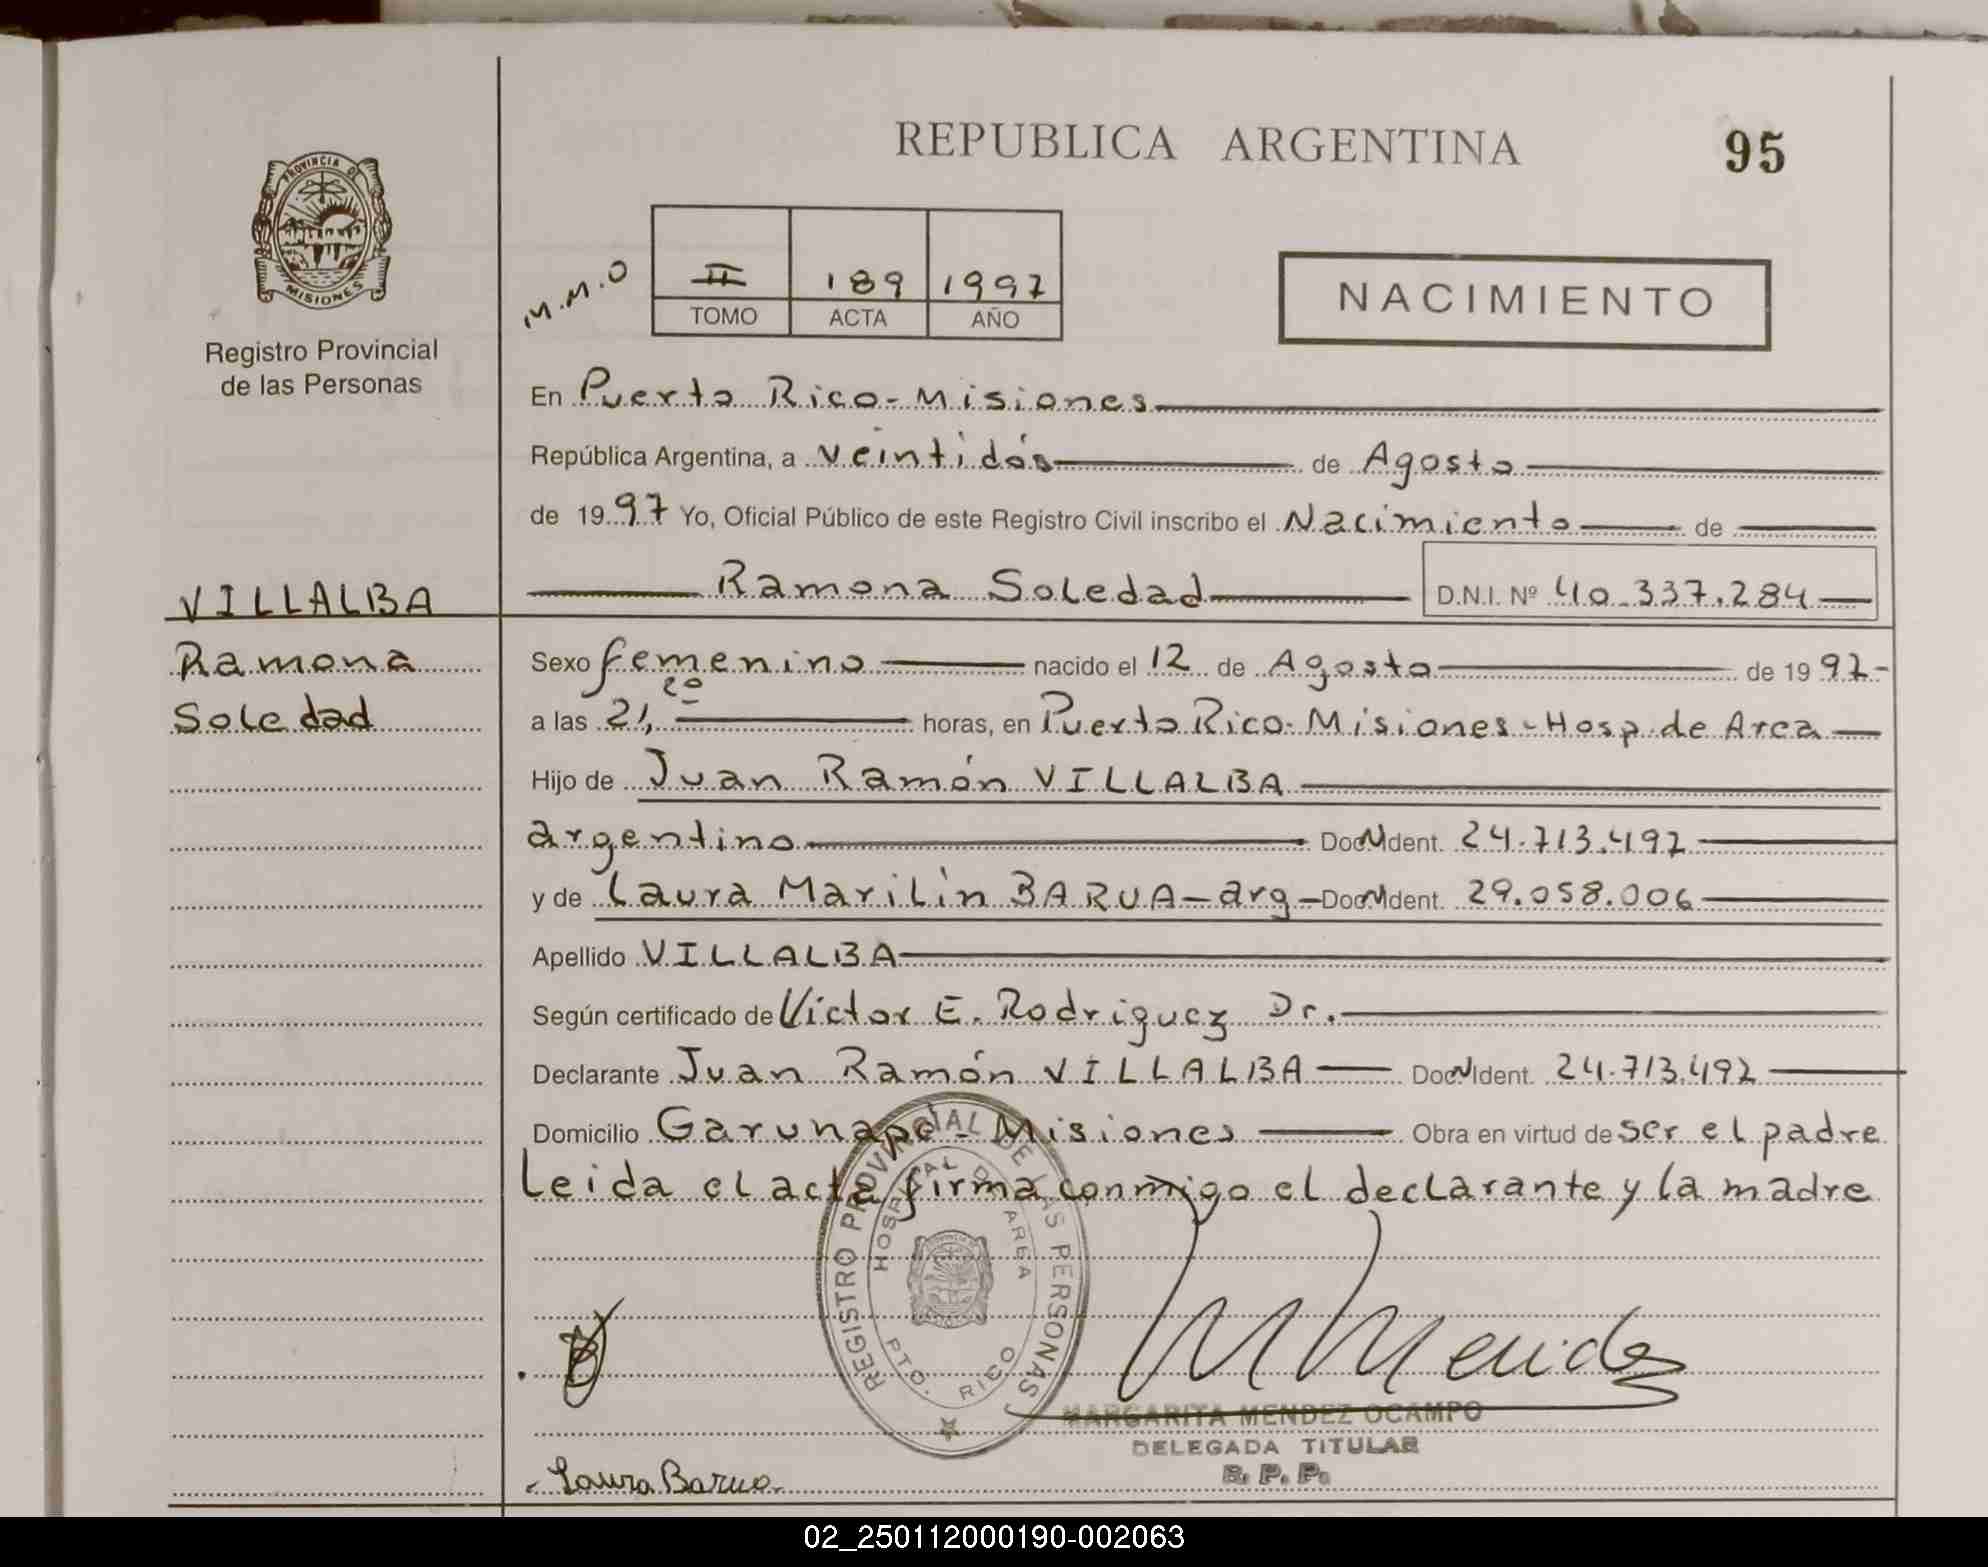 REPUBLICA ARGENTINA
95
PROVINCIA DE
MISIONES
Registro Provincial
de las Personas
M.M.O
II 189 1997
TOMO ACTA AÑO
NACIMIENTO
En Puerto Rico - Misiones
República Argentina, a veintidós de Agosto
de 1997 Yo, Oficial Público de este Registro Civil inscribo el Nacimiento de
Ramona Soledad D.N.I. Nº 40.337.284
VILLALBA
Ramona
Soledad
Sexo femenino nacido el 12 de Agosto de 1997-
a las 21,20 horas, en Puerto Rico - Misiones - Hosp. de Area
Hijo de Juan Ramón VILLALBA
argentino Doc N Ident. 24.713.492
y de Laura Marilin BARUA - arg - Doc N Ident. 29.058.006
Apellido VILLALBA
Según certificado de Victor E. Rodriguez Dr.
Declarante Juan Ramón VILLALBA Doc N Ident. 24.713.492
Domicilio Garuhape - Misiones Obra en virtud de ser el padre
Leida el acta firma conmigo el declarante y la madre
REGISTRO PROVINCIAL DE LAS PERSONAS
HOSPITAL DE AREA
PTO. RICO
M Mendez
MARGARITA MENDEZ OCAMPO
DELEGADA TITULAR
R. P. P.
Laura Barua
02_250112000190-002063